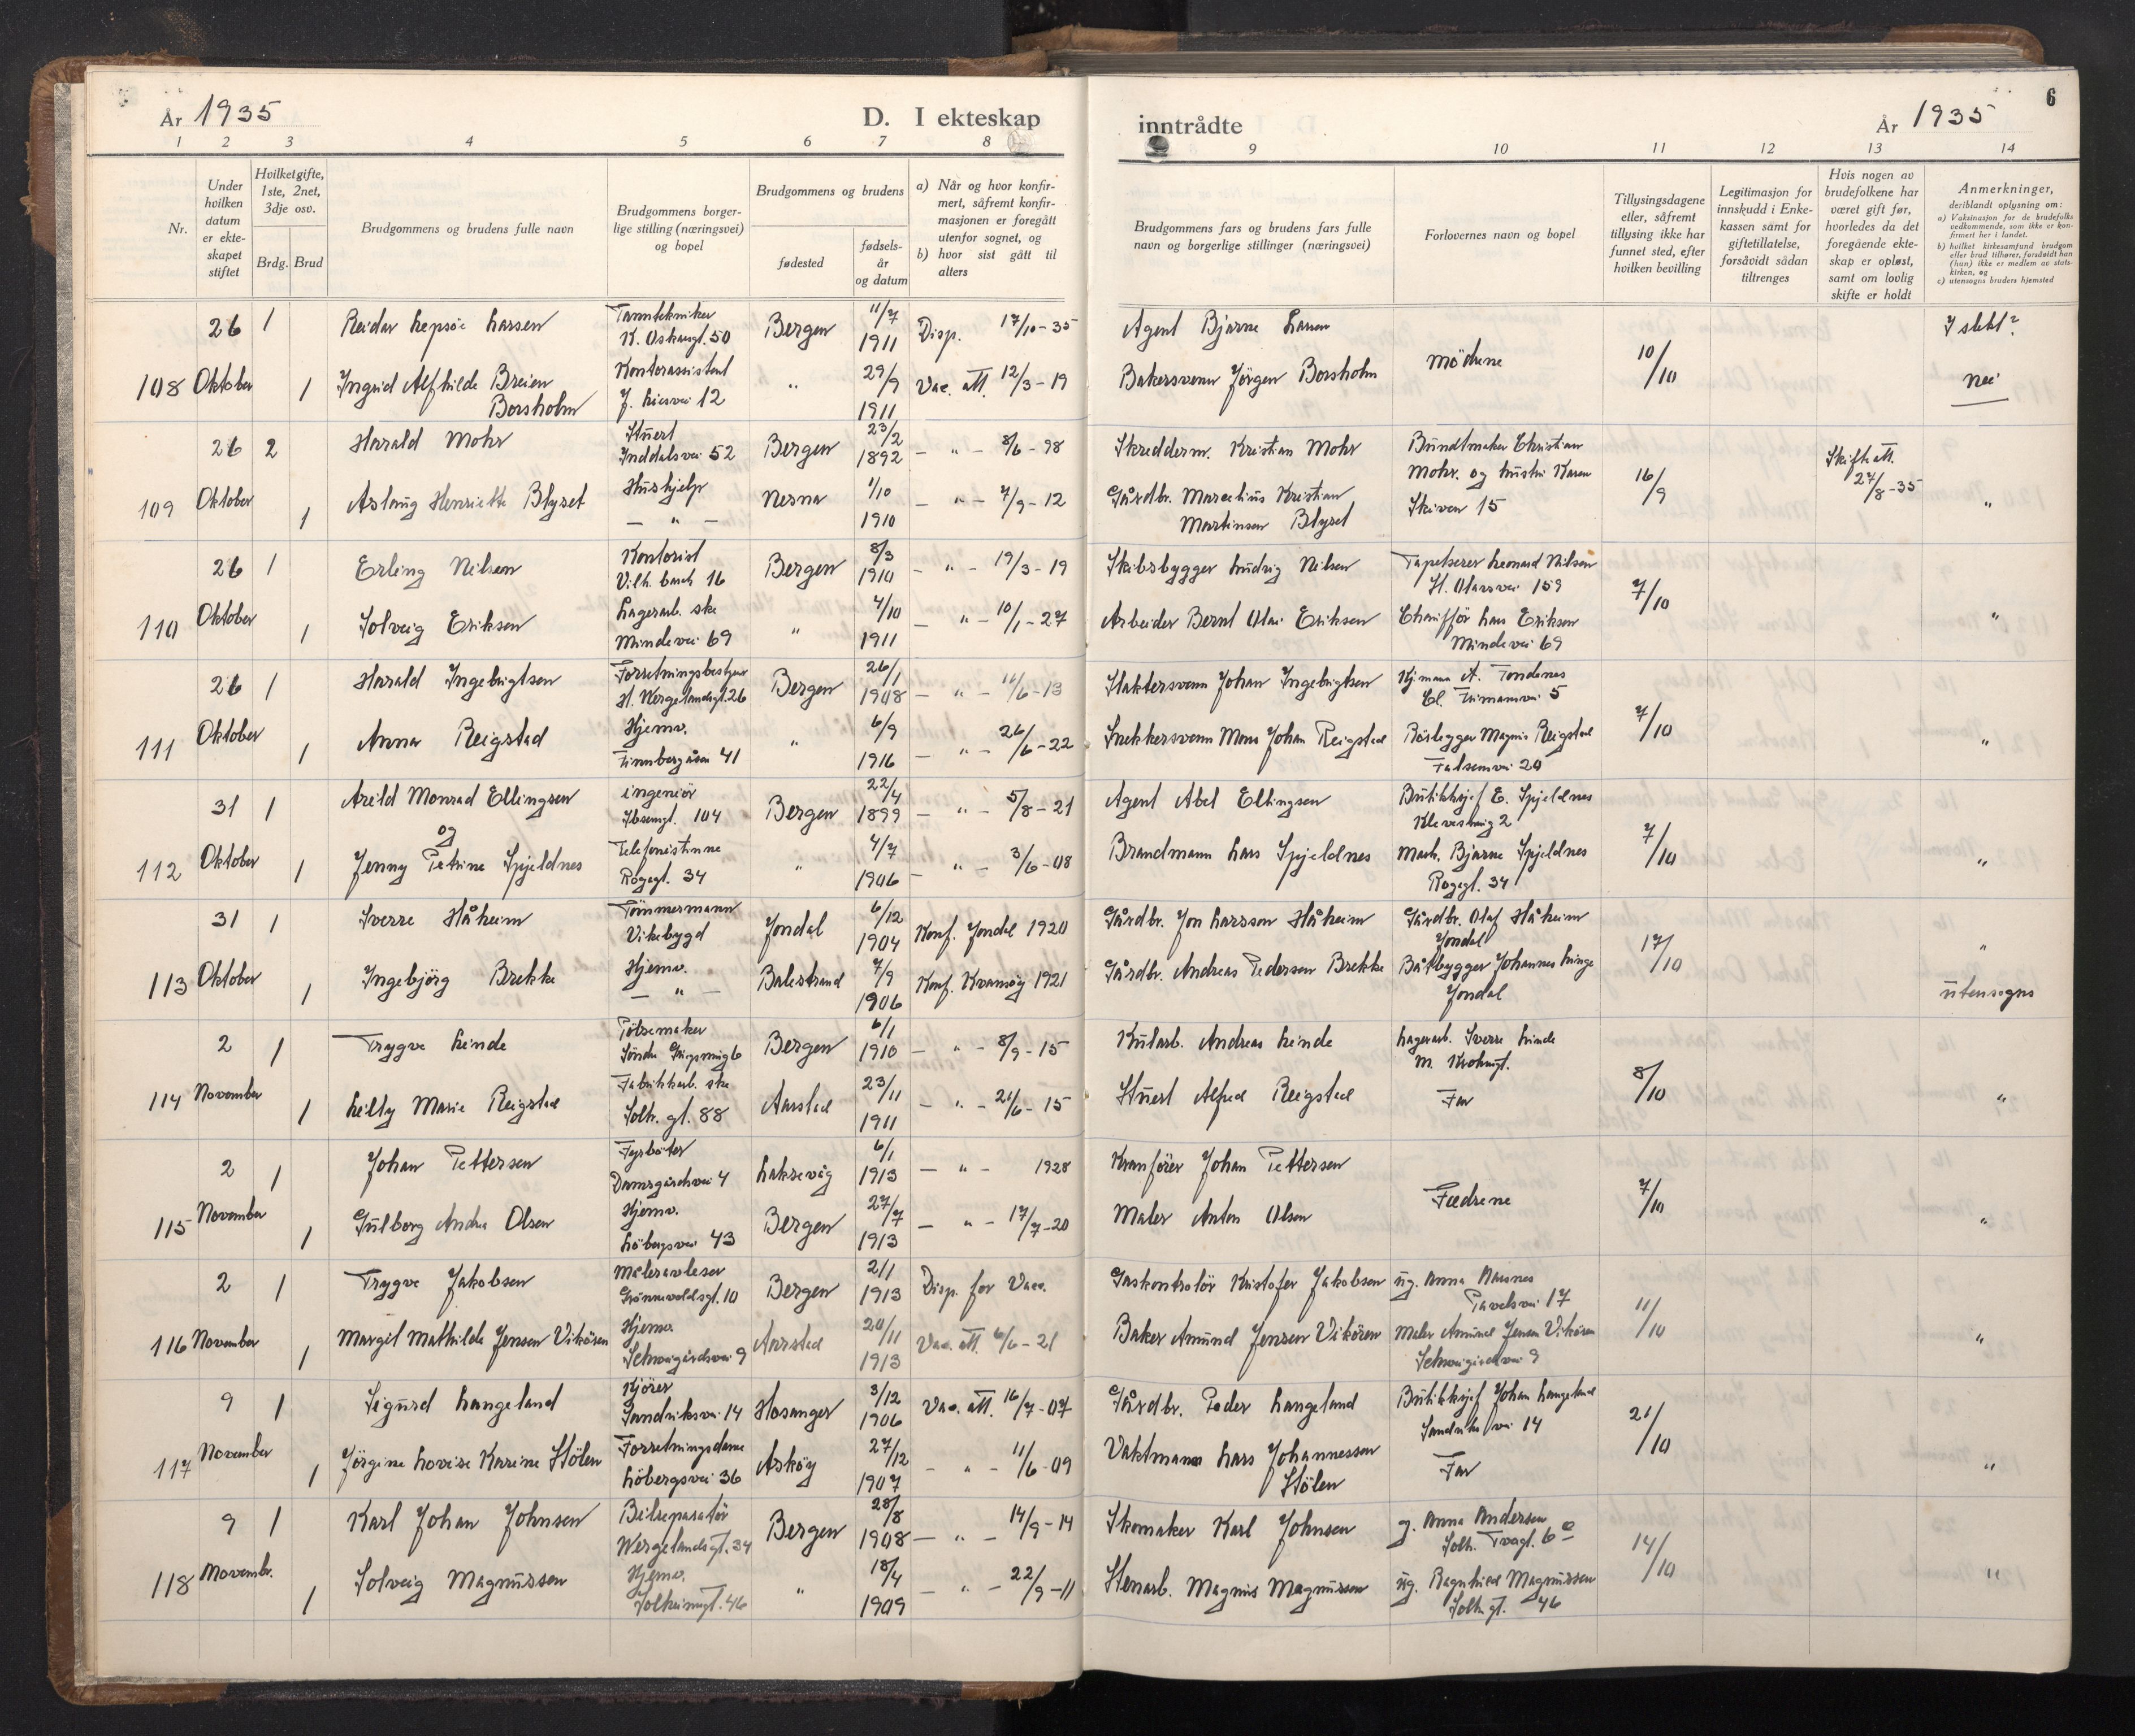 År 1935
D. I ekteskap
inntrådte
År 1935
6
1 2 3 4 5 6 7 8
9 10 11 12 13 14
Nr.
Under hvilken datum er ekteskapet stiftet
Hvilket gifte, 1ste, 2net, 3dje osv.
Brdg. Brud
Brudgommens og brudens fulle navn
Brudgommens borgerlige stilling (næringsvei) og bopel
Brudgommens og brudens
fødested
fødselsår og datum
a) Når og hvor konfirmert, såfremt konfirmasjonen er foregått utenfor sognet, og
b) hvor sist gått til alters
Brudgommens fars og brudens fars fulle navn og borgerlige stillinger (næringsvei)
Forlovernes navn og bopel
Tillysingsdagene eller, såfremt tillysing ikke har funnet sted, efter hvilken bevilling
Legitimasjon for innskudd i Enkekassen samt for giftetillatelse, forsåvidt sådan tiltrenges
Hvis nogen av brudefolkene har været gift før, hvorledes da det foregående ekteskap er opløst, samt om lovlig skifte er holdt
Anmerkninger, deriblandt oplysning om:
a) Vaksinasjon for de brudefolks vedkommende, som ikke er konfirmert her i landet.
b) hvilket kirkesamfund brudgom eller brud tilhører, forsåvidt han (hun) ikke er medlem av statskirken, og
c) utensogns bruders hjemsted
26 1 Reidar Lepsøe Larsen Tanntekniker K. Oskarsgt. 50 Bergen 11/7 1911 Disp. 17/10-35 Agent Bjarne Larsen I slekt?
108 Oktober 1 Ingrid Alfhilde Breien Borsholm Kontorassistent J. Liesvei 12 " 29/9 1911 Vac. att. 12/3-19 Bakersvenn Jörgen Borsholm Mödrene 10/10 nei
26 2 Harald Mohr Stuert Inddalsvei 52 Bergen 23/2 1892 - " - 8/6-98 Skredderm. Kristian Mohr Bundtmaker Christian Mohr. og hustru Karen Skiven 15 16/9 Skifte att. 27/8-35
109 Oktober 1 Aslaug Henriette Blyset Hushjelp - " - Nesna 1/10 1910 - " - 7/9-12 Gårdbr. Marcelius Kristian Martinsen Blyset "
26 1 Erling Nilsen Kontorist Vilh. Bøch 16 Bergen 8/3 1910 - " - 19/3-19 Skibsbygger Ludvig Nilsen Tapetserer Leonard Nilsen St. Olavsvei 159 7/10
110 Oktober 1 Solveig Eriksen Lagerarb. ske Mindevei 69 " 4/10 1911 - " - 10/1-27 Arbeider Bernt Olai Eriksen Chaufför Lars Eriksen Mindevei 69 "
26 1 Harald Ingebrigtsen Forretningsbestyrer H. Wergelandsgt. 26 Bergen 26/1 1908 - " - 11/6-13 Slaktersvenn Johan Ingebrigtsen Kjimann A. Tondenes 5 7/10
111 Oktober 1 Anna Reigstad Hjemv. Finnbergåsen 41 " 6/9 1916 - " - 26/6-22 Snekkersvenn Mons Johan Reigstad Rörlegger Magnus Reigstad Falsensvei 20 "
31 1 Arild Monrad Ellingsen og ingeniör Ibsensgt. 104 Bergen 22/4 1899 - " - 5/8-21 Agent Abel Ellingsen Butikksjef E. Spjeldnes 2 7/10
112 Oktober 1 Jenny Petrine Spjeldnes Telefonistinne Rogagt. 34 " 4/7 1906 - " - 3/6-08 Brandmann Lars Spjeldnes Mask. Bjarne Spjeldnes Rogagt. 34 "
31 1 Sverre Håheim Tömmermann Vikebygd Jondal 6/12 1904 Konf. Jondal 1920 Gårdbr. Jon Larsson Håheim Gårdbr. Olaf Håheim Jondal 17/10 "
113 Oktober 1 Ingebjörg Brekke Hjemv. - " - Balestrand 7/9 1906 Konf. Kvamsöy 1921 Gårdbr. Andreas Pedersen Brekke Båtbygger Johannes Linge Jondal utensogns
2 1 Trygve Leinde Pölsemaker Bergen 6/1 1910 - " - 8/9-15 Kularb. Andreas Leinde Lagerarb. Sverre Linde M. Krohnsgt. 8/10
114 November 1 Lelly Marie Reigstad Fabrikkarb. ske Solh. gt. 88 Aarstad 23/11 1911 - " - 21/6-15 Stuert Alfred Reigstad Far "
2 1 Johan Pettersen Fyrböter Damsgårdsvei 4 Laksevåg 6/1 1913 - " - 1928 Kranförer Johan Pettersen Fedrene 7/10
115 November 1 Gulborg Andrea Olsen Hjemv. Löbergsvei 43 Bergen 27/7 1913 - " - 17/7-20 Maler Anton Olsen "
2 1 Trygve Jakobsen Måleravleser Grönnevoldsgt. 10 Bergen 2/1 1913 Disp. for Vacc. Gaskontrolör Kristofer Jakobsen ug. Anna Aarsnes Pavelsvei 17 11/10
116 November 1 Margit Mathilde Jensen Vikören Hjemv. Schweigårdsvei 9 Aarstad 20/11 1913 Vac. att. 6/6-21 Baker Amund Jensen Vikören Maler Amund Jensen Vikören Schweigårdsvei 9 "
9 1 Sigurd Langeland Kjörer Sandviksvei 14 Hosanger 3/12 1906 Vac. att. 16/7-07 Gårdbr. Peder Langeland Butikksjef Johan Langeland Sandviksvei 14 21/10
117 November 1 Jörgine Lovise Karine Stölen Forretningsdame Löbergsvei 36 Asköy 27/12 1907 - " - 11/6-09 Vaktmann Lars Johannessen Stölen Far "
9 1 Karl Johan Johnsen Bilreparatör Wergelandsgt. 34 Bergen 28/8 1908 - " - 14/9-14 Skomaker Karl Johnsen g. Anna Andersen Solh. Tvegt. 6e 14/10
118 Novembr. 1 Solveig Magnussen Hjemv. Solheimsgt. 46 " 18/4 1909 - " - 22/9-11 Stenarb. Magnus Magnussen ug. Ragnhild Magnussen Solh.gt. 46 "